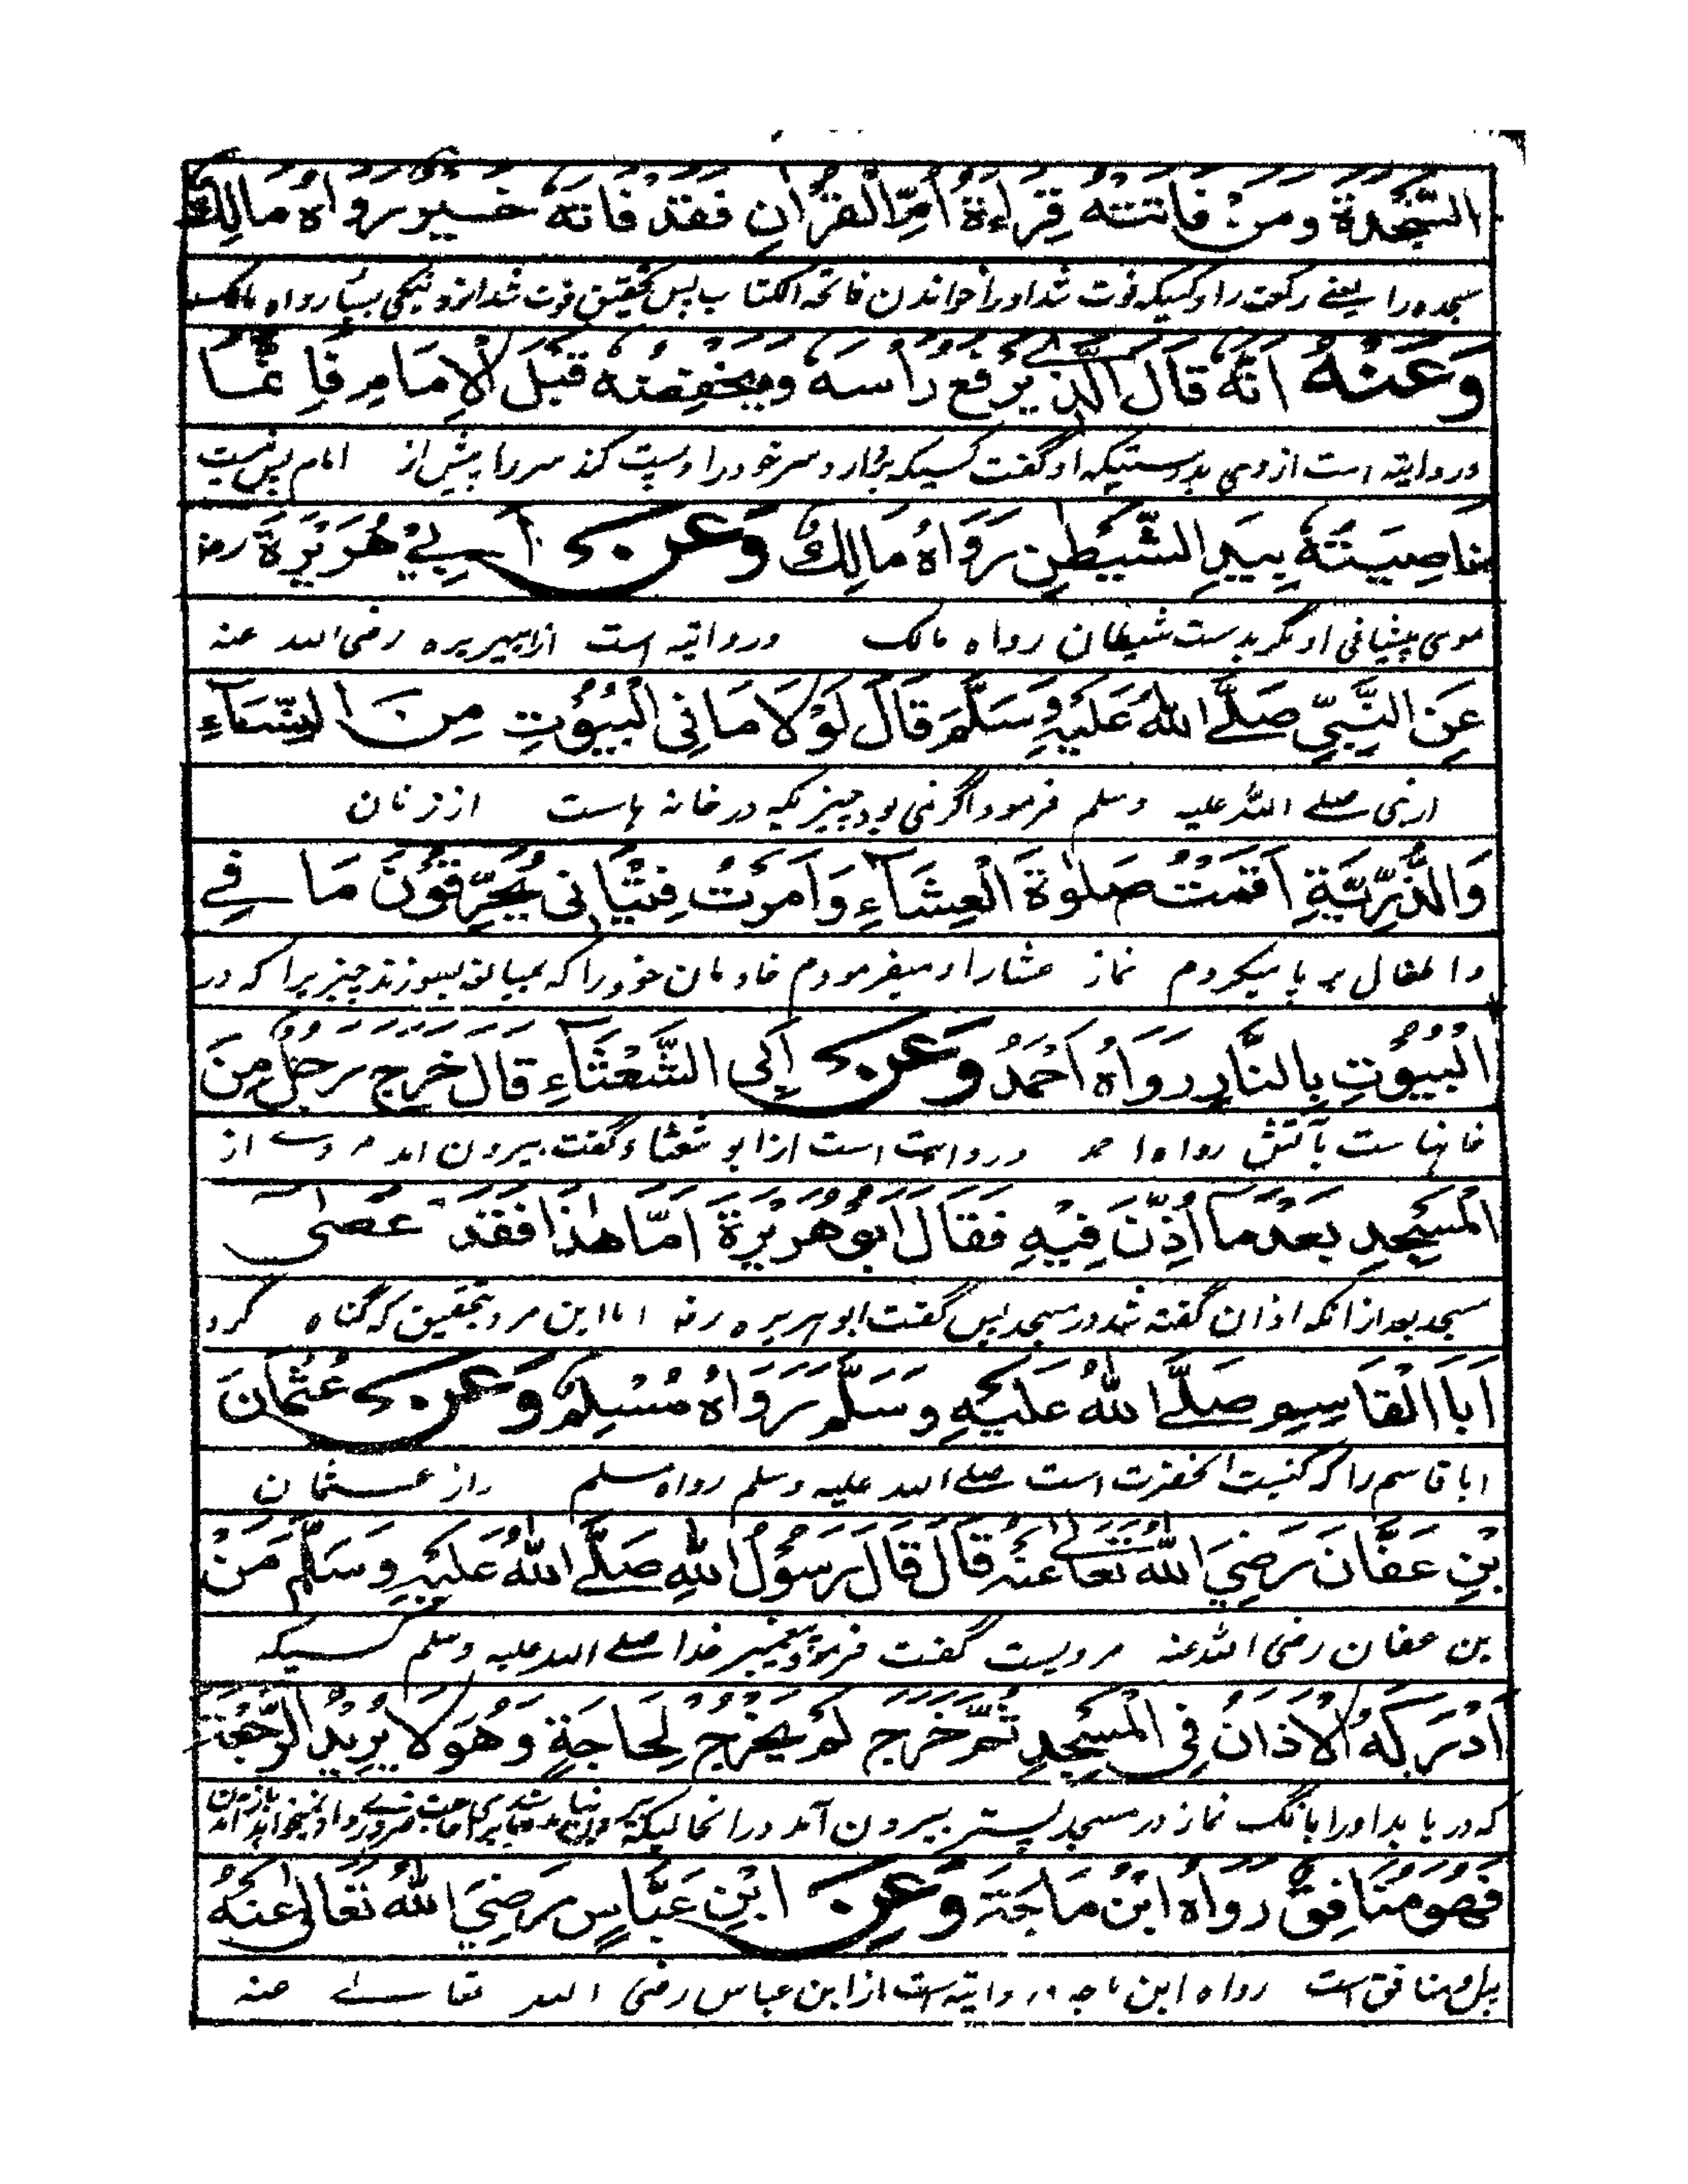 السَّجْدَةَ وَمَنْ فَاتَتْهُ قِرَاءَةُ أُمِّ الْقُرْانِ فَقَدْ فَاتَهُ خَيْرٌ رَوَاهُ مَالِكٌ
سجده را یعنے رکعت را و کسیکه فوت شد او را خواندن فاتحه الکتاب پس تحقیق فوت شد ازو نیکی بسیار رواه مالک
وَعَنْهُ اَنَّهُ قَالَ الَّذِيْ يَرْفَعُ رَأْسَهُ وَيَخْفِضُهُ قَبْلَ الْاِمَامِ فَاِنَّمَا
و روایته است از وی بدرستیکه او گفت کسیکه بردارد سر خود را و پست کند سر را پیش از امام پس نیست
نَاصِيَتُهُ بِيَدِ الشَّيْطٰنِ رَوَاهُ مَالِكٌ وَعَنْ اَبِيْ هُرَيْرَةَ رض
موی پیشانی او مگر بدست شیطان رواه مالک و روایته است از ابیهریره رضی الله عنه
عَنِ النَّبِيِّ صَلَّے اللهُ عَلَيْهِ وَسَلَّمَ قَالَ لَوْلَا مَا فِي الْبُيُوْتِ مِنَ النِّسَآءِ
از نبی صلے الله علیه وسلم فرمود اگر نمی بود چیزیکه در خانه هاست از زنان
وَالذُّرِّيَّةِ اَقَمْتُ صَلٰوةَ الْعِشَآءِ وَاَمَرْتُ فِتْيَانِى يُحَرِّقُوْنَ مَا فِے
و اطفال بر پا میکردم نماز عشا را و میفرمودم خادمان خود را که بمبالغه بسوزند چیزیرا که در
الْبُيُوْتِ بِالنَّارِ رَوَاهُ اَحْمَدُ وَعَنْ اَبِى الشَّعْثَآءِ قَالَ خَرَجَ رَجُلٌ مِنَ
خانهاست بآتش رواه احمد و روایت است از ابو شعثاء گفت بیرون امد مردے از
الْمَسْجِدِ بَعْدَ مَا اُذِّنَ فِيْهِ فَقَالَ اَبُوْ هُرَيْرَةَ اَمَّا هٰذَا فَقَدْ عَصٰى
مسجد بعد از انکه اذان گفته شد در مسجد پس گفت ابو هریره رض اما این مرد بتحقیق که گناه کرد
اَبَا الْقَاسِمِ صَلَّے اللهُ عَلَيْهِ وَسَلَّمَ رَوَاهُ مُسْلِمٌ وَعَنْ عُثْمَانَ
ابا قاسم را که کنیت انحضرت است صلے الله علیه وسلم رواه مسلم و از عثمان
بْنِ عَفَّانَ رَضِيَ اللهُ تَعَالٰے عَنْهُ قَالَ قَالَ رَسُوْلُ اللهِ صَلَّے اللهُ عَلَيْهِ وَسَلَّمَ مَنْ
بن عفان رضی الله عنه مرویست گفت فرمود پیغمبر خدا صلے الله علیه وسلم کسیکه
اَدْرَكَهُ الْاَذَانُ فِى الْمَسْجِدِ ثُمَّ خَرَجَ لَمْ يَخْرُجْ لِحَاجَةٍ وَهُوَ لَا يُرِيْدُ الرَّجْعَةَ
که دریابد او را بانگ نماز در مسجد پستر بیرون آمد در انحالیکه
فَهُوَ مُنَافِقٌ رَوَاهُ ابْنُ مَاجَةَ وَعَنِ ابْنِ عَبَّاسٍ رَضِيَ اللهُ تَعَالٰى عَنْهُ
منافق است رواه ابن ماجه و روایته است از ابن عباس رضی الله تعالے عنه